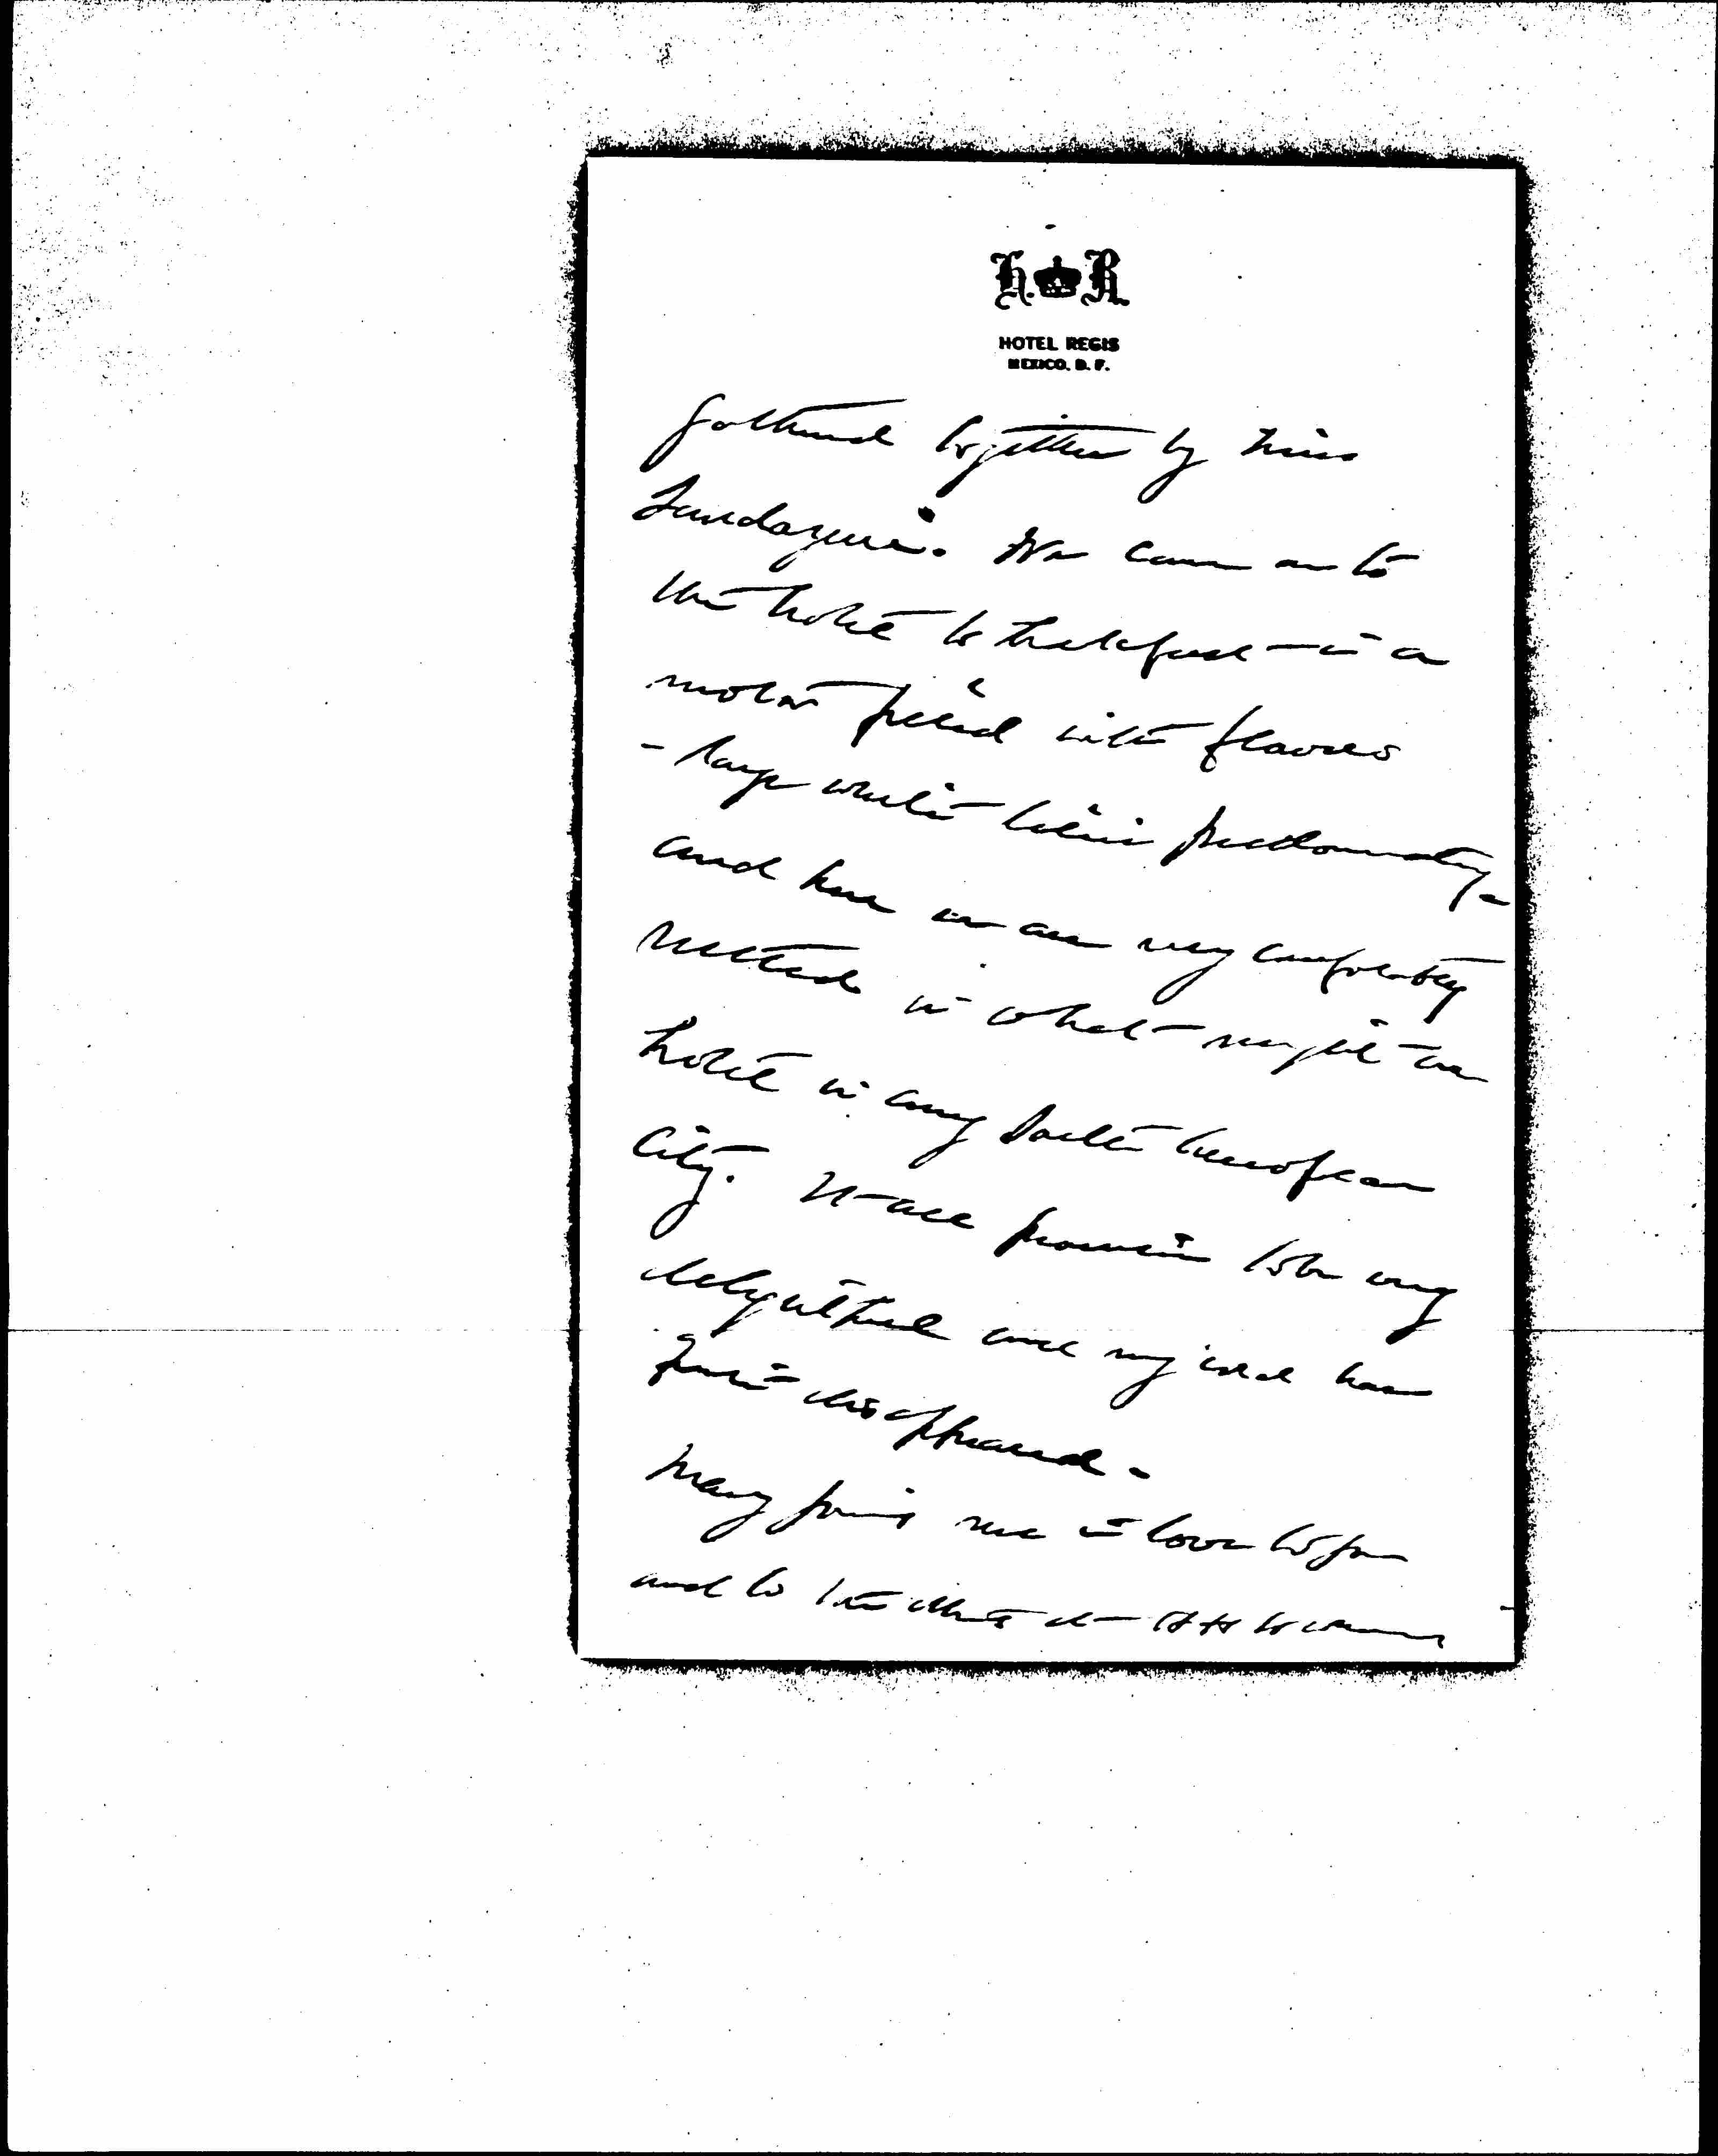 H. R.
HOTEL REGIS
MEXICO. D. F.
gathered together by Miss
We came on to
the hotel to breakfast — in a
motor filled with flowers
- large white lilies predominating -
and here we are very comfortably
nested in what might be a
hotel in any southern European
City. It all promises to be very
delightful and my cold has
quite disappeared.
Mary joins me in love to you
and to the others at